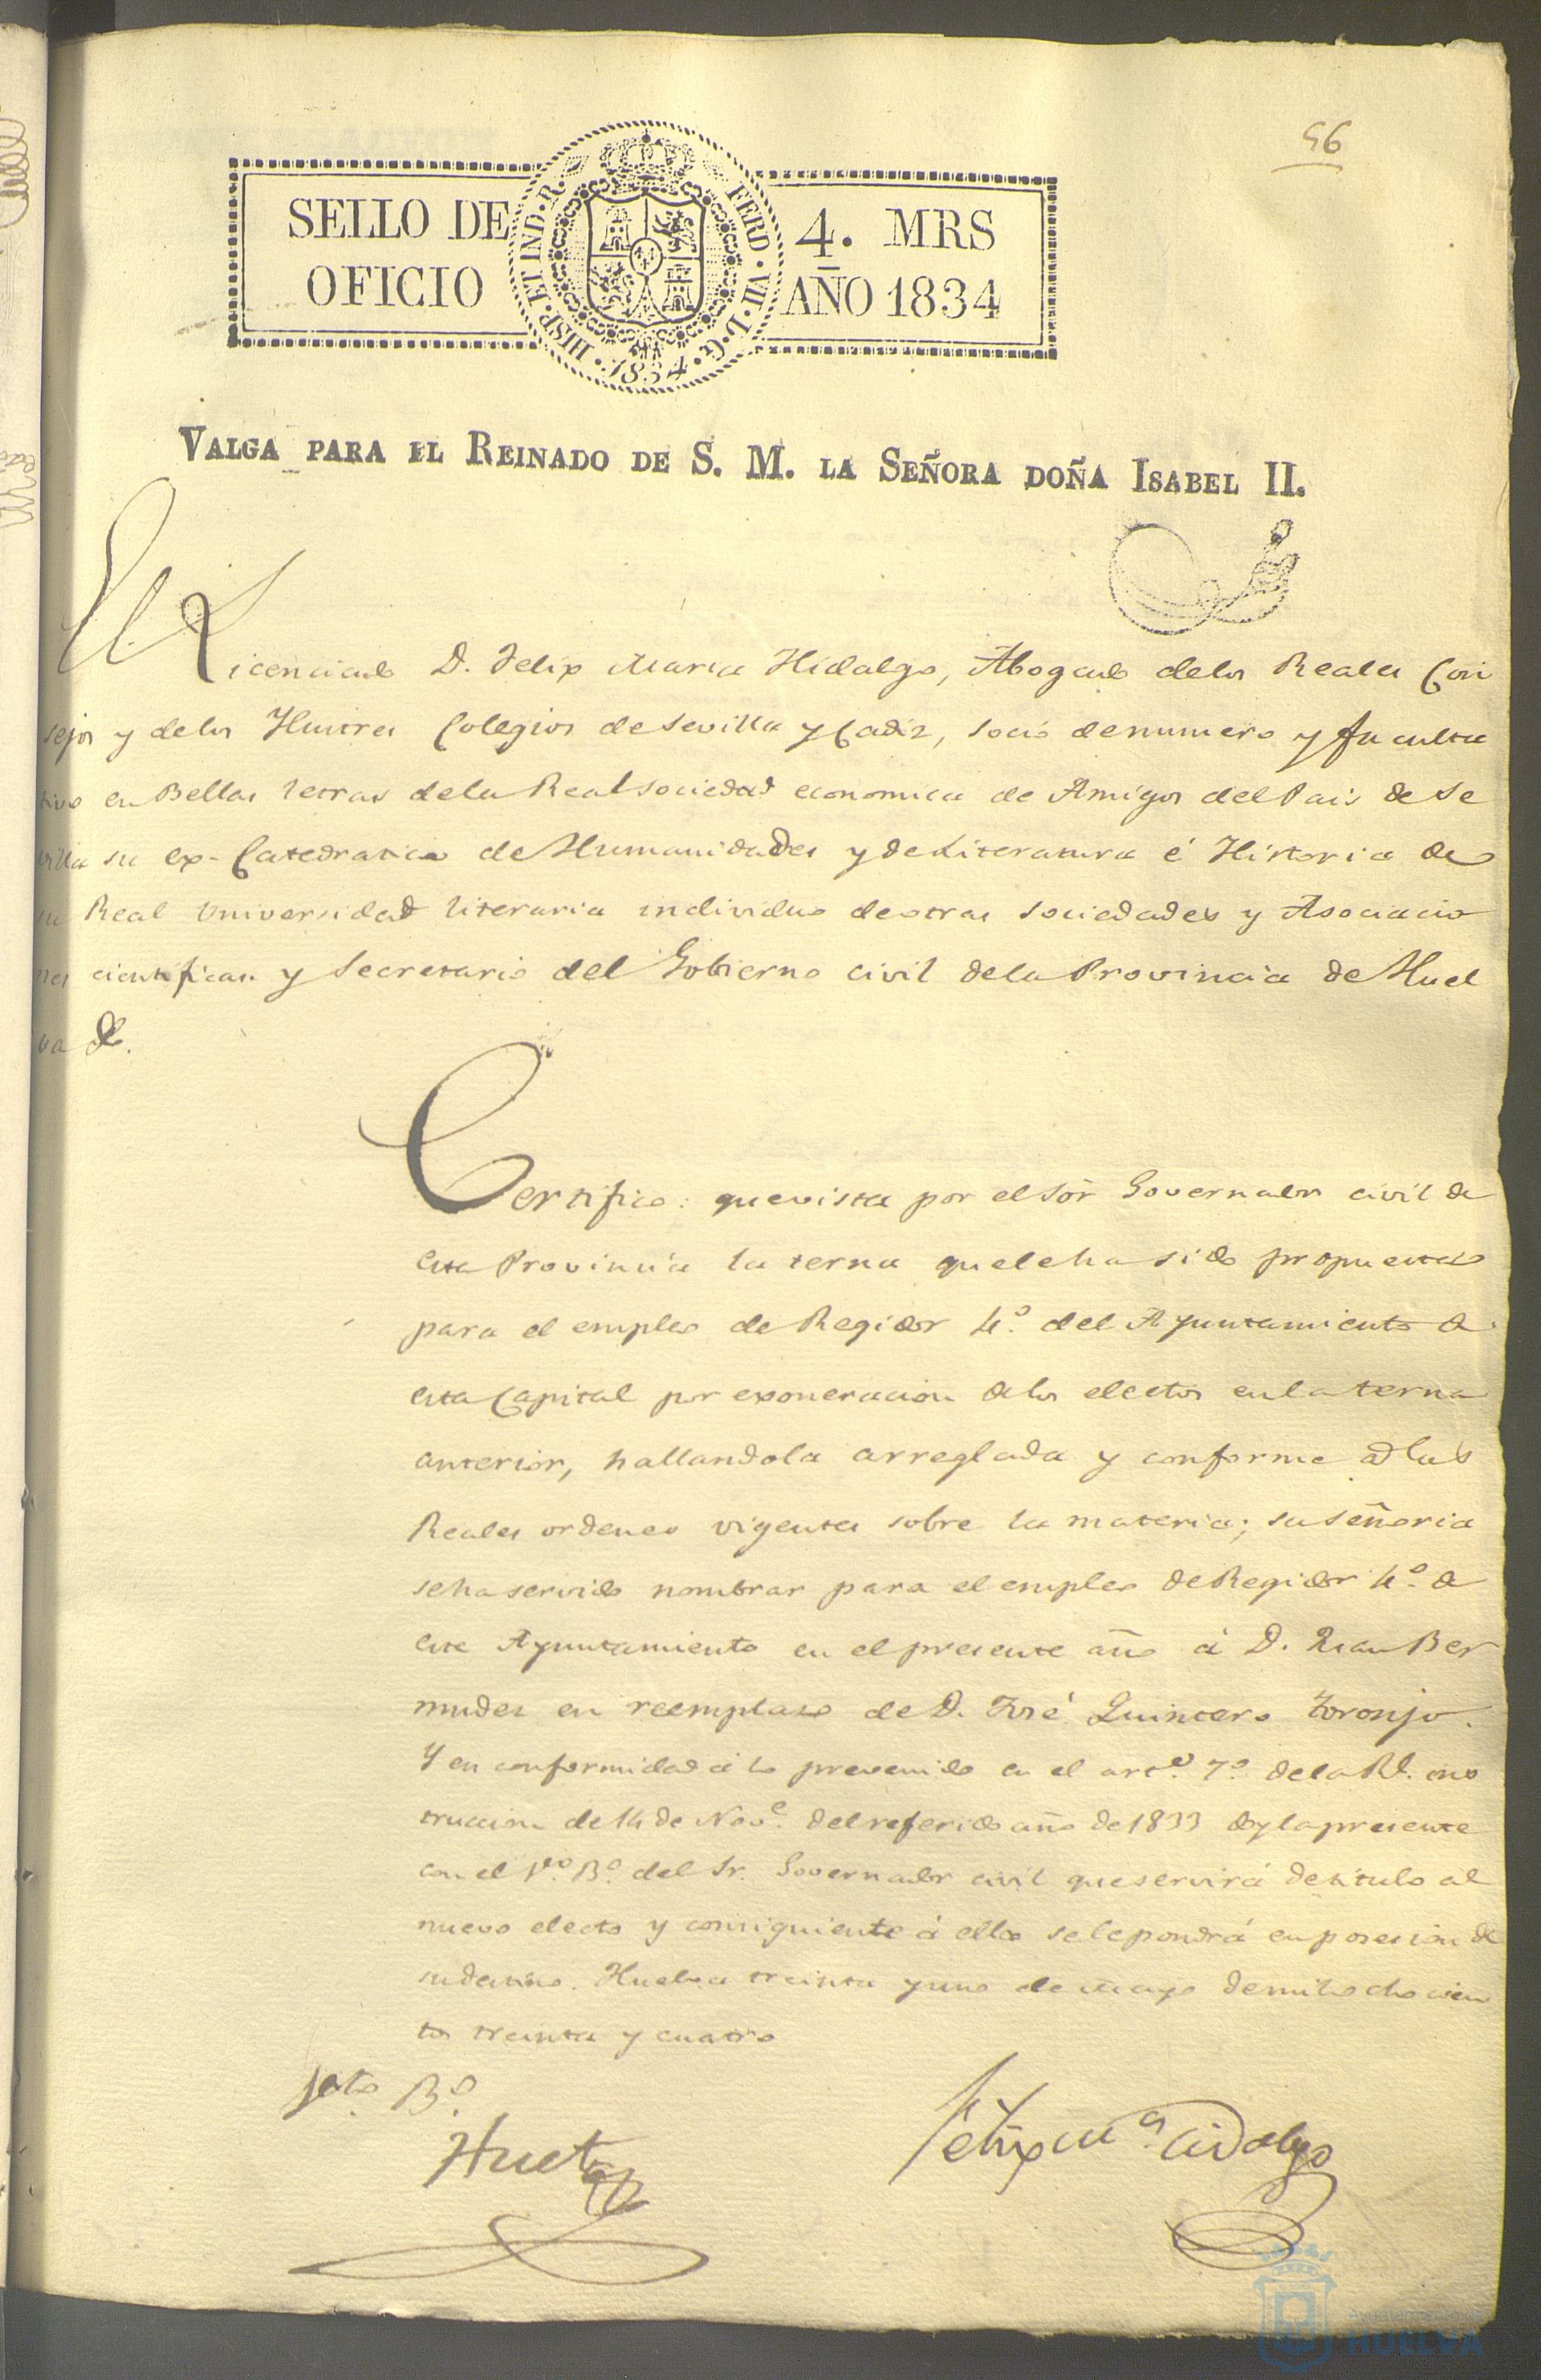 56
SELLO DE
OFICIO
HISP. ET IND. R.
FERD. VII. D. G.
1834
4. MRS
AÑO 1834
VALGA PARA EL REINADO DE S. M. LA SEÑORA DOÑA ISABEL II.
El Licenciado D. Felix Maria Hidalgo, Abogado delos Reales Con
sejos y delos Ilustres Colegios de Sevilla y Cadiz, socio de numero y faculta
tivo en Bellas letras dela Real sociedad economica de Amigos del Pais de Se
villa su ex-Catedratico de Humanidades y de Literatura é Historia de
su Real Universidad literaria individuo de otras sociedades y Asociacio
nes cientificas y Secretario del Gobierno civil dela Provincia de Huel
va &.
Certifico: que vista por el Sôr Governador civil de
esta Provincia la terna que le ha sido propuesta
para el empleo de Regidor 4.º del Ayuntamiento de
esta Capital por exoneracion delos electos en la terna
anterior, hallandola arreglada y conforme a las
Reales ordenes vigentes sobre la materia; su señoria
se ha servido nombrar para el empleo de Regidor 4.º de
este Ayuntamiento en el presente año á D. Juan Ber
mudes en reemplazo de D. José Quintero Toronjo.
Y en conformidad á lo prevenido en el art.º 7.º de la Rl. ins
truccion de 14 de Nov.e del referido año de 1833 doy la presente
con el V.º B.º del Sr. Governador civil que servirá de titulo al
nuevo electo y consiguiente á ello se le pondrá en posesion de
su destino. Huelva treinta y uno de Mayo de mil ocho cien
tos treinta y cuatro
B.º
Huet
Felix M.a Hidalgo
Ayuntamiento de
HUELVA